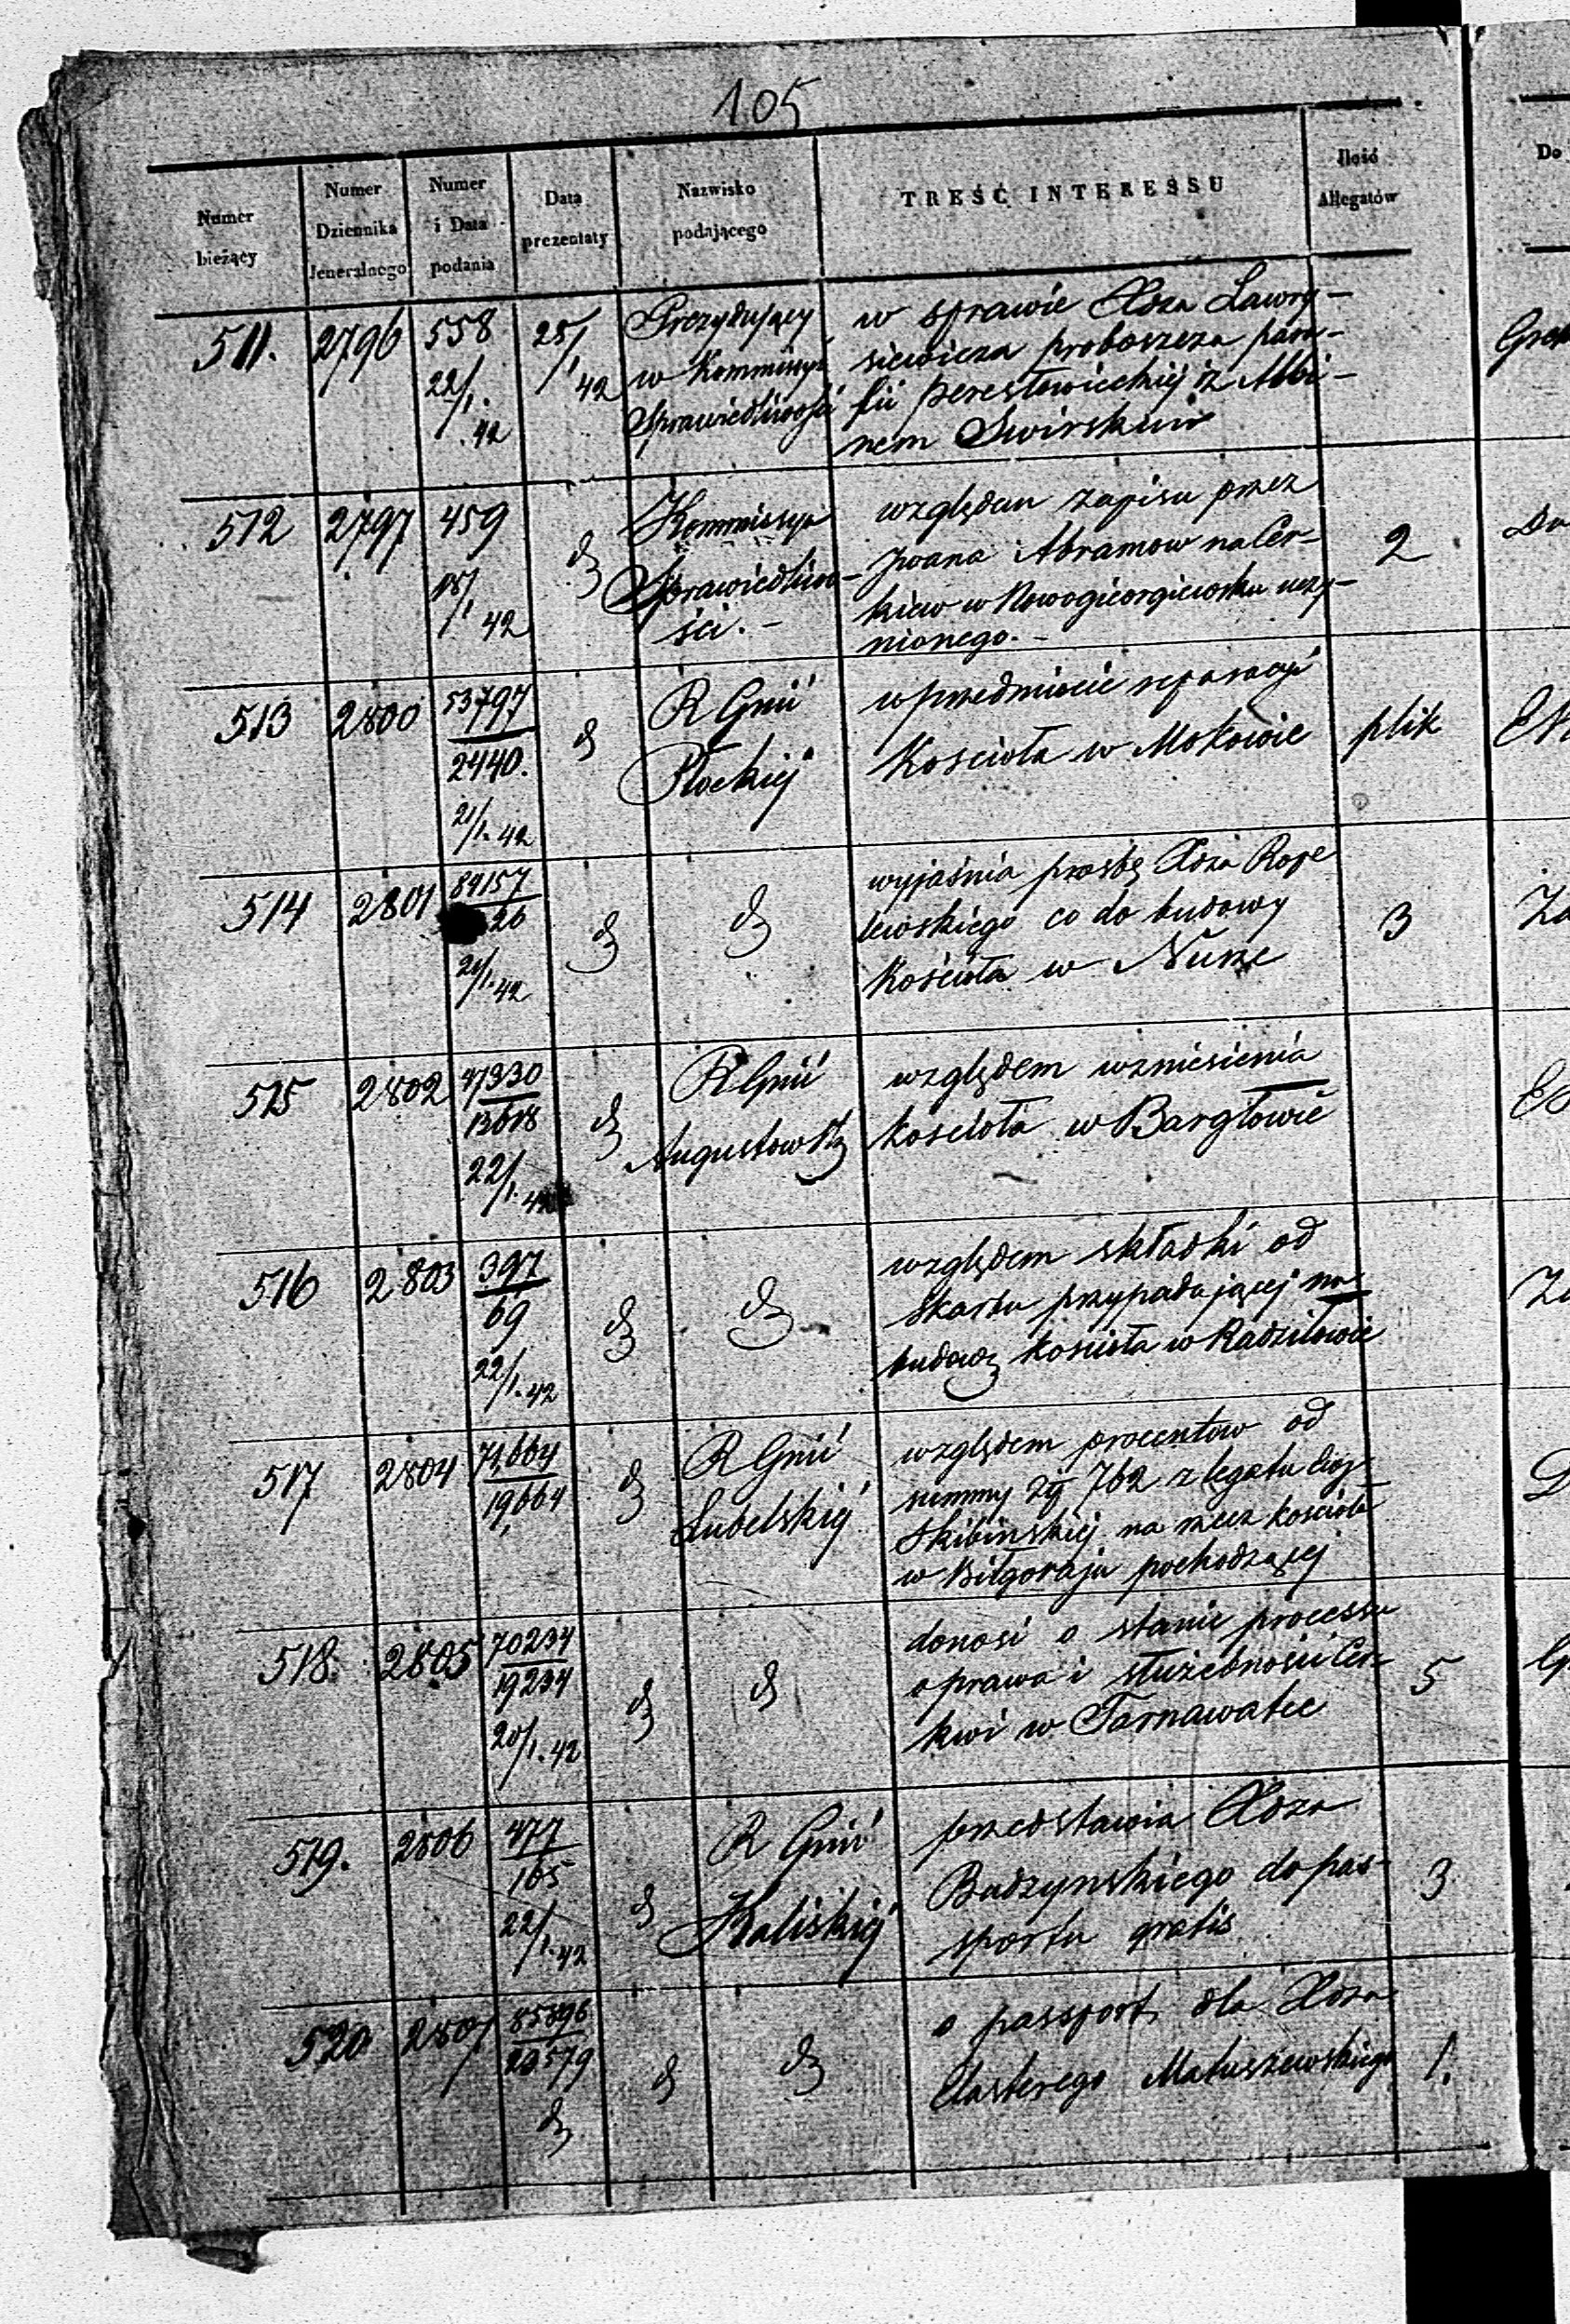 105
Numer bieżący
Numer Dziennika Jeneralnego
Numer i Data podania
Data prezentaty
Nazwisko podającego
TREŚĆ INTERESSU
Ilość Allegatów
Do
511. 2796 558 22/1. 42 25/1 42
Prezydujący
w Kommissyi
Sprawiedliwości
w sprawie Xdza Lawry-
siewicza proboszcza para-
fii perestowieckiej z Albi-
nem Swirskim
512 2797 459 18/1 42
Kommissya
Sprawiedliwo-
ści. -
względem zapisu przez
Jwana Abramow na Cer-
kiew w Nowogieorgiewsku uczy-
nionego. -
2
513 2800 53797/2440. 21/1. 42
R Gnii
Płockiej
w przedmiocie reparacyi
Kościoła w Makowie
plik
514 2801 21/1. 42
wyjaśnia prosbę Xdza Rope
lewskiego co do budowy
Kościoła w Nurze
3
515 2802 47330/13618 22/1. 42
R Gnii
Augustowsk
względem wzniesienia
Kościoła w Bargłowie
516 2803 397/69 22/1. 42
względem składki od
Skarbu przypadającej na
budowę Kościoła w Radziłowie
517 2804 71,664/19,664
R Gnii
Lubelskiej
względem procentow od
summy Zł 762 z legatu
Skibinskiej na rzecz kościoła
w Biłgoraju pochodzącej
518. 2805 70234/19234 20/1. 42
donosi o stanie processu
o prawa i służebności Cer-
kwi w Tarnawatce
5
519. 2806 477/165 22/1. 42
R Gnii
Kaliskiej
przedstawia Xdza
Budzynskiego do pas-
sportu gratis
3
520 2807
o passport dla Xdza
Matuszewskiego
1.